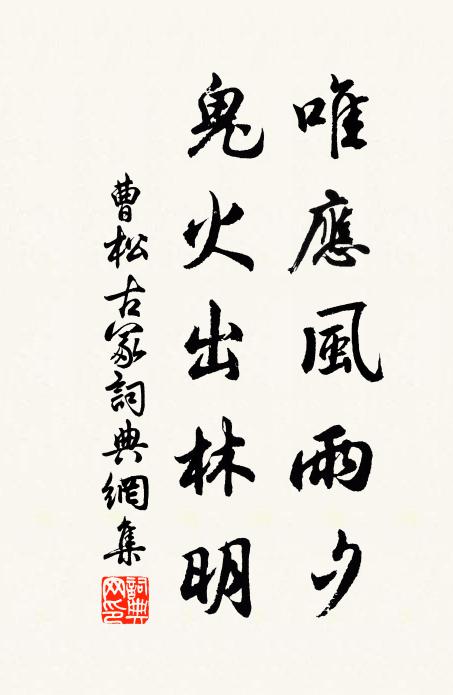 唯應風雨夕
鬼火出林明
曹松古冢詞典網集
詞典網印